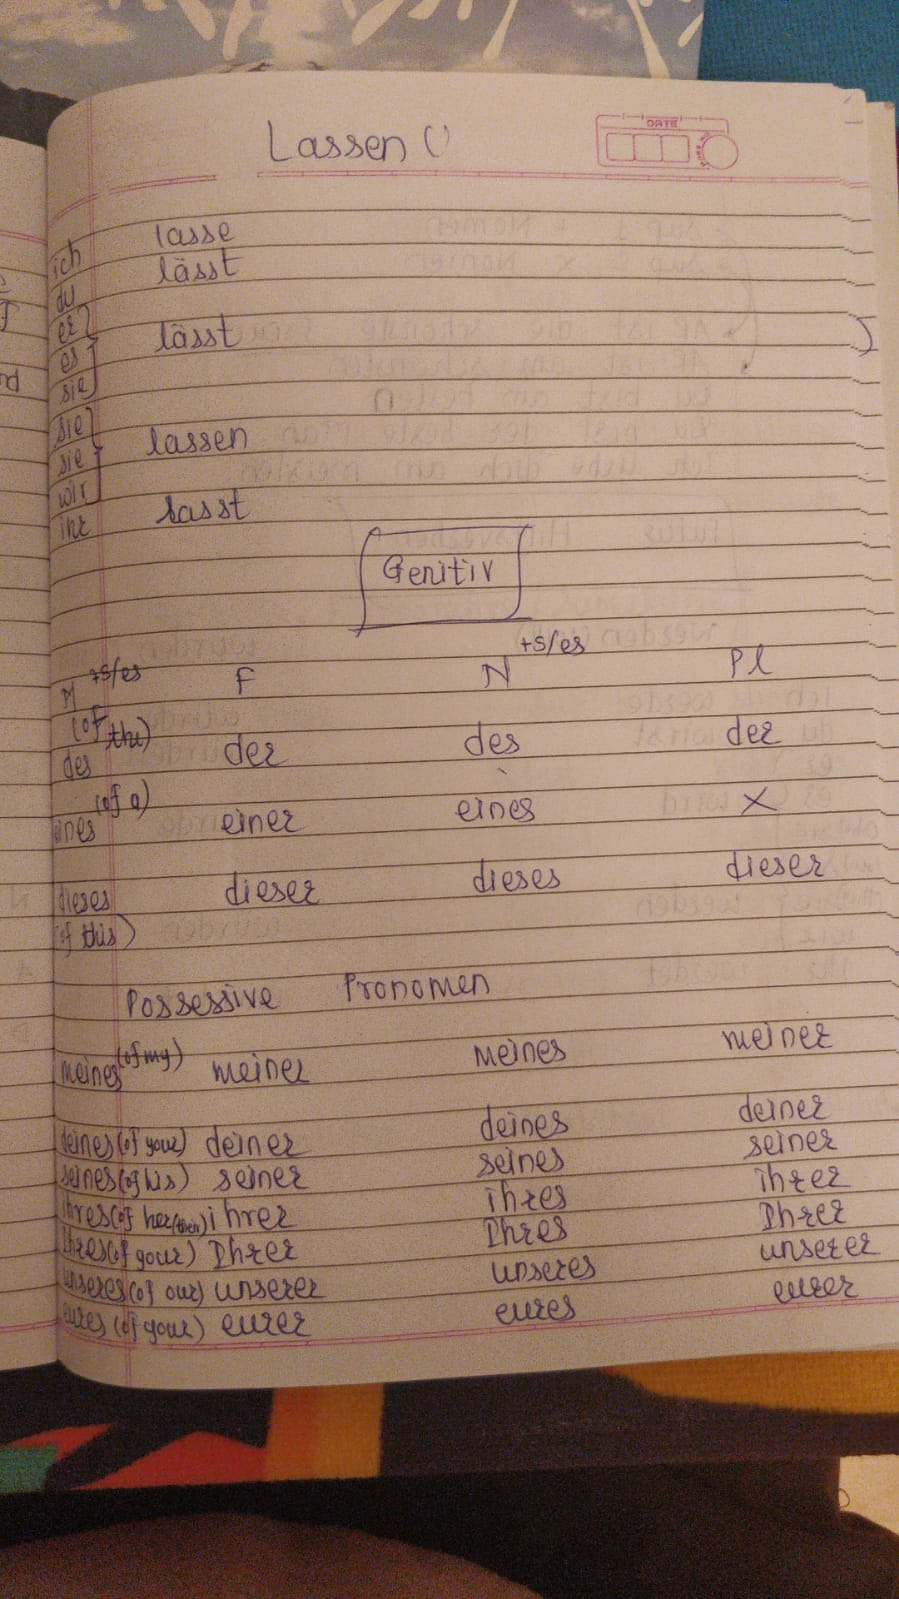 Lassen ()
DATE
ich lasse
du lässt
er
es lässt
sie
sie
sie lassen
wir
ihr lasst
Genitiv
M +s/es F N +s/es Pl
(of the)
des der des der
(of a)
eines einer eines X
dieses dieser dieses dieser
(of this)
Possessive Pronomen
meines (of my) meiner meines meiner
deines (of your) deiner deines deiner
seines (of his) seiner seines seiner
ihres (of her/their) ihrer ihres ihrer
Ihres (of your) Ihrer Ihres Ihrer
unseres (of our) unserer unseres unserer
eures (of your) eurer eures eurer